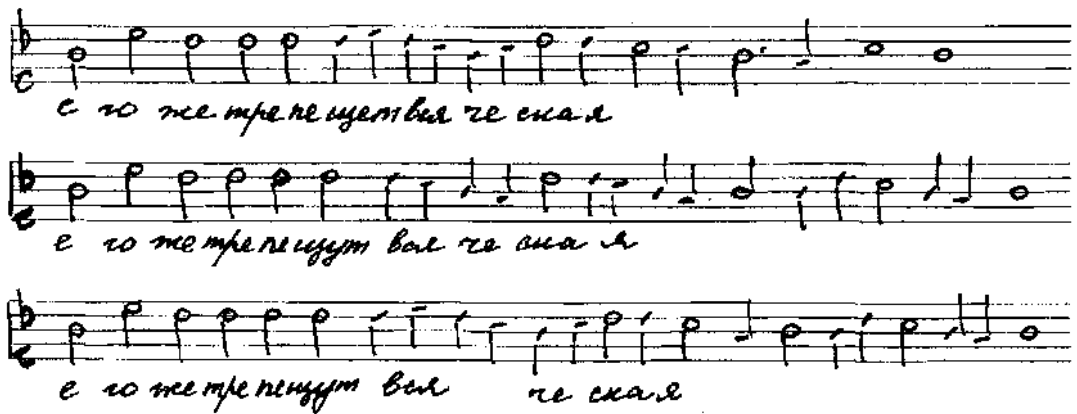 е го же трепещет вся че ская
е го же трепещут вся че ская
е го же трепещут вся че ская